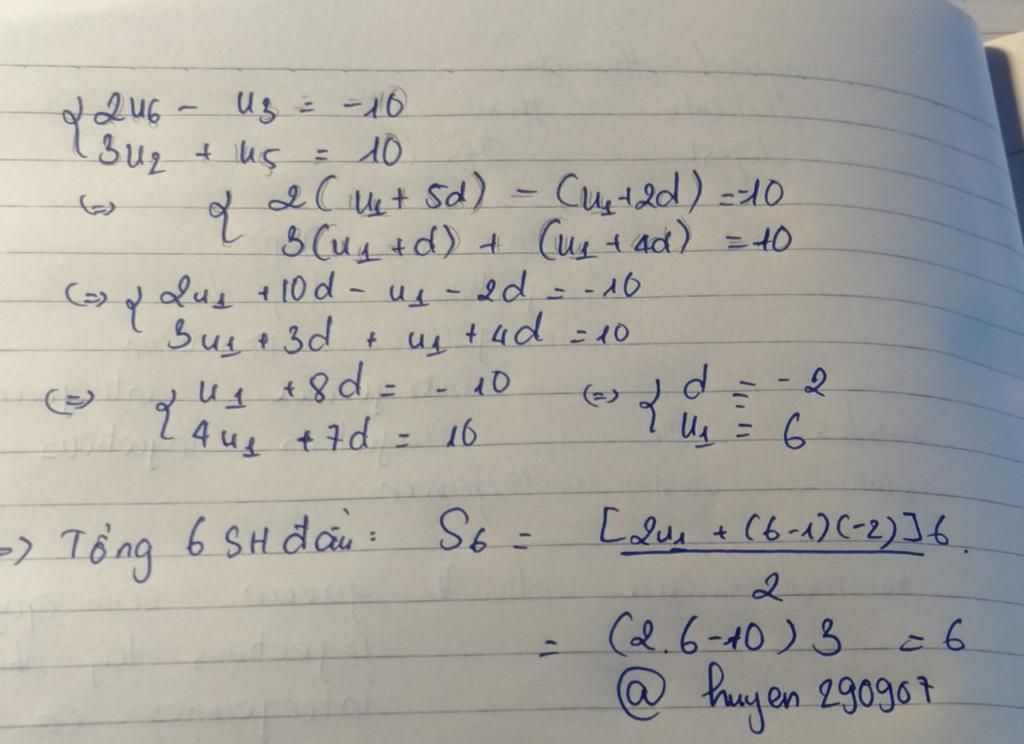 { 2u₆ - u₃ = -10
3u₂ + u₅ = 10
<=> { 2(u₁ + 5d) - (u₁+2d) = -10
3(u₁ + d) + (u₁ + 4d) = 10
<=> { 2u₁ + 10d - u₁ - 2d = -10
3u₁ + 3d + u₁ + 4d = 10
<=> { u₁ + 8d = -10 <=> { d = -2
4u₁ + 7d = 10 u₁ = 6
=> Tổng 6 SH đầu: S₆ = [2u₁ + (6-1)(-2)]6
2
= (2.6-10)3 = 6
@ huyen 290907